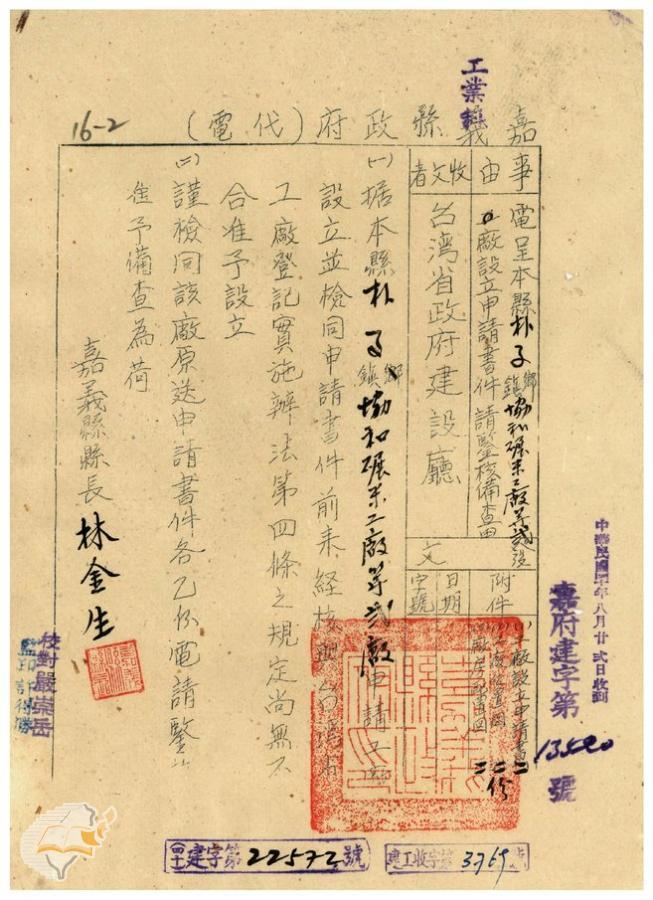 工業科
嘉義縣政府（代電）
16-2
事由
電呈本縣朴子鄉鎮協和碾米工廠等貳
工廠設立申請書件請鑒核備查由
收文者
台灣省政府建設廳
附件
日期
字號
文
㈠工廠設立申請書二
㈠据本縣朴子鄉鎮協和碾米工廠等貳廠申請工
設立並檢同申請書件前來経核與台灣省
工廠登記實施辦法第四條之規定尚無不
合准予設立
㈡謹檢同該廠原送申請書件各乙份電請鑒
准予備查為荷
嘉義縣縣長林金生
校對嚴崇岳
監印許得勝
中華民國四十年八月廿貳日收到
嘉府建字第
號
四十建字第22572號
建工收字第3769號